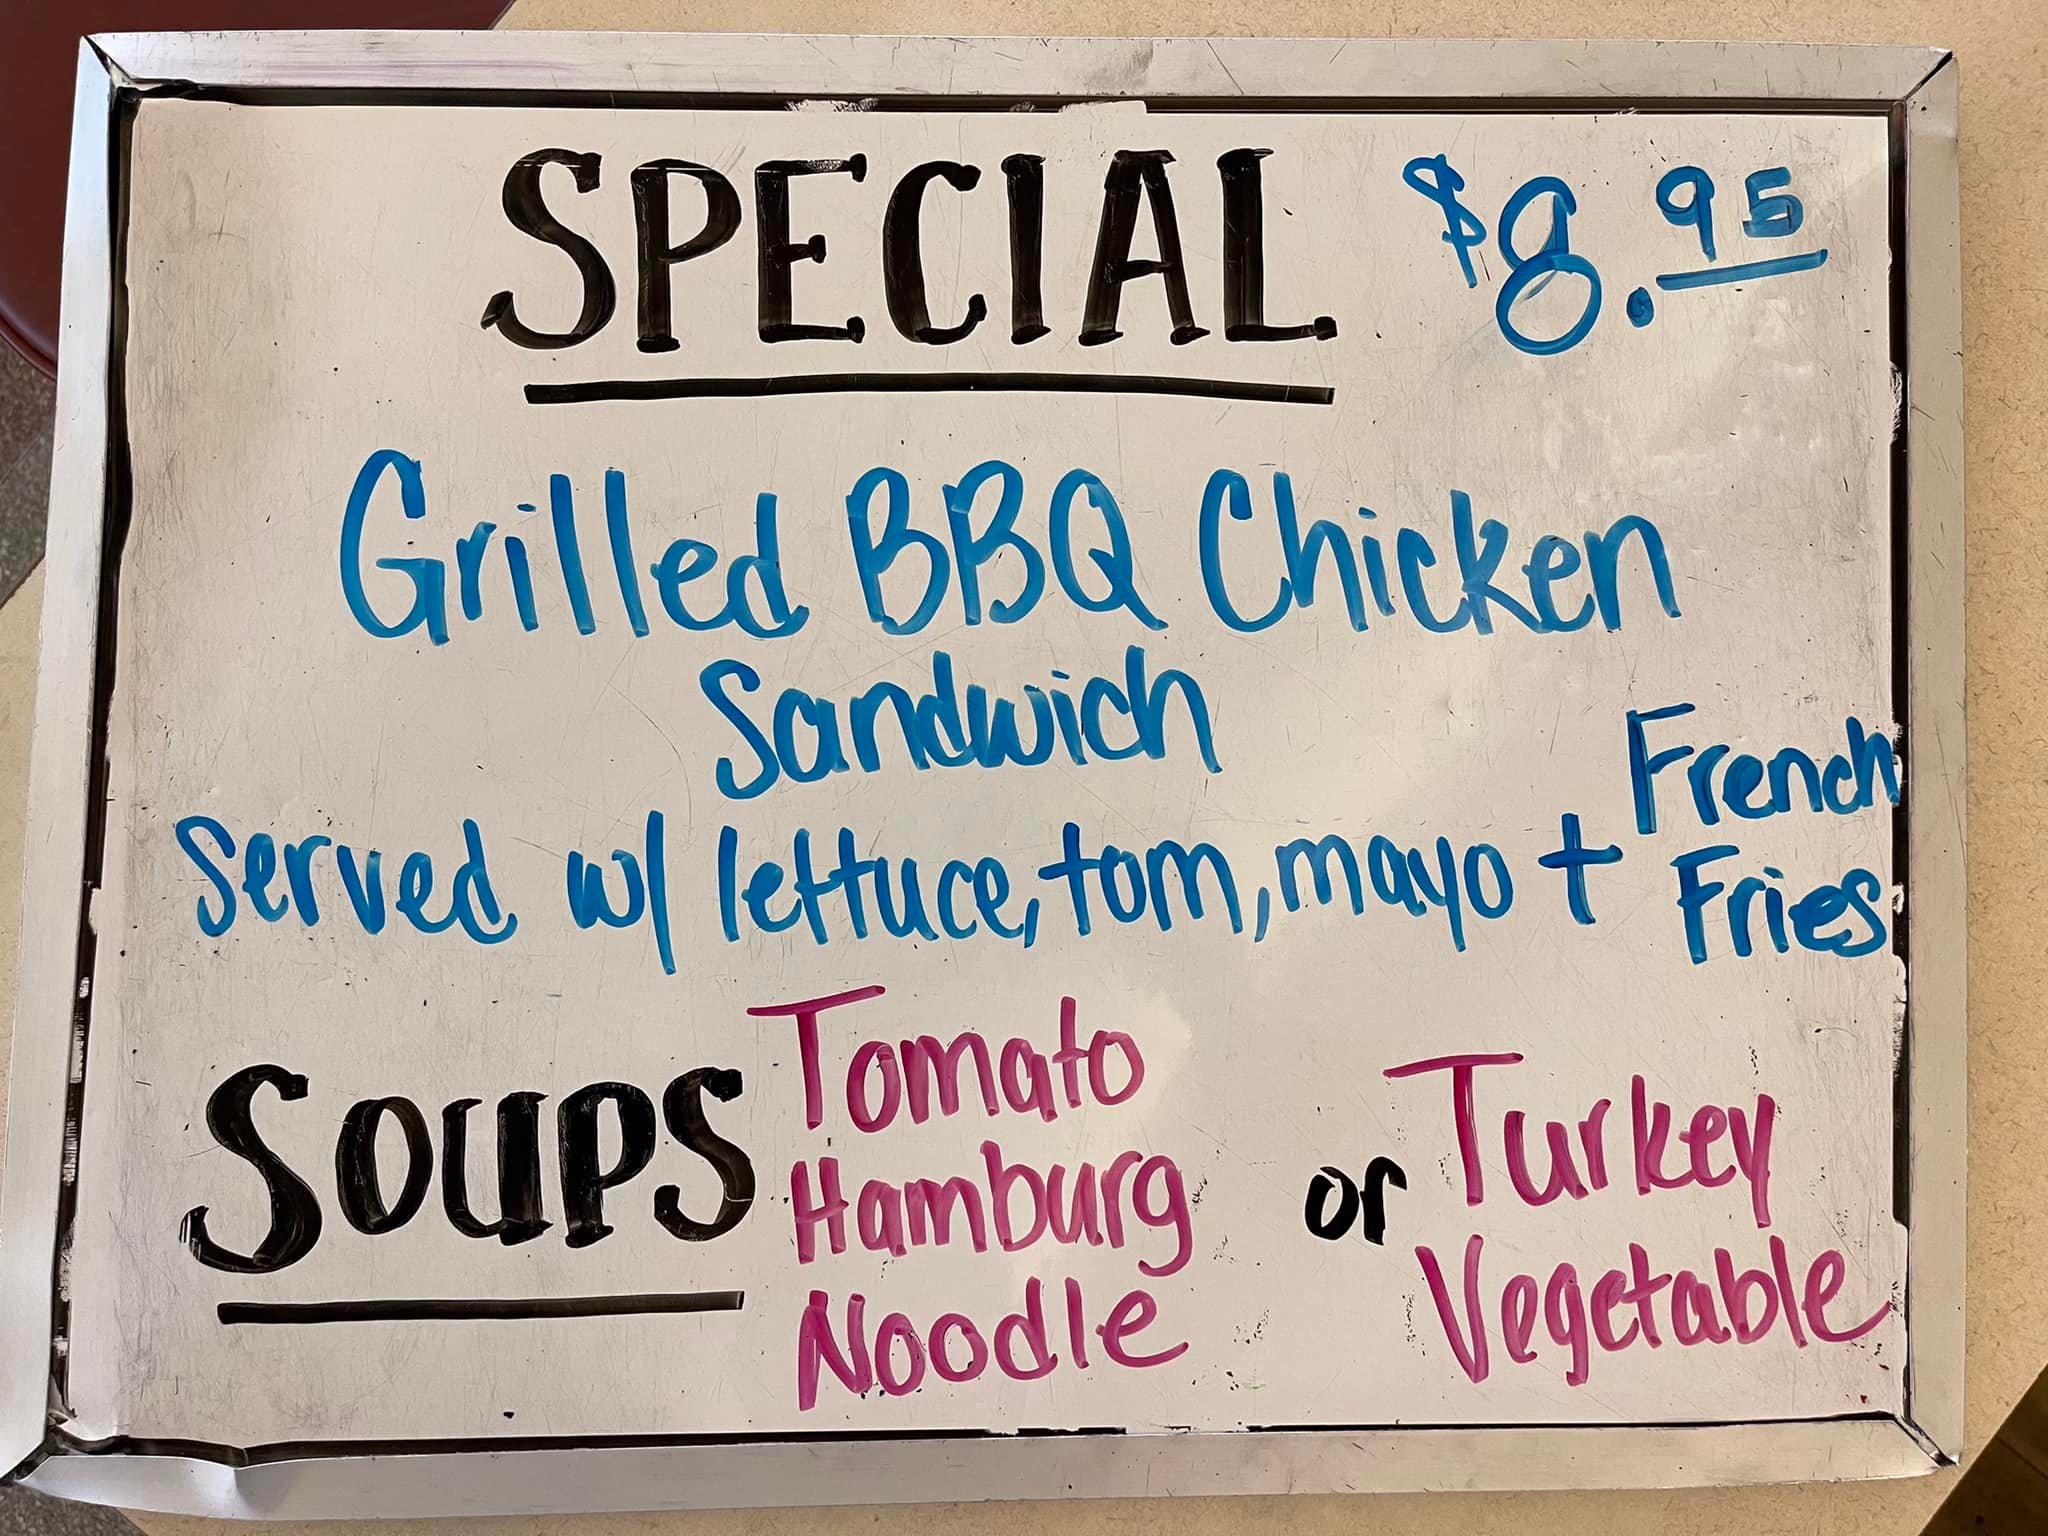 SPECIAL $8.95
Grilled BBQ Chicken
Sandwich
Served w/ lettuce, tom, mayo + French
Fries
SOUPS Tomato
Hamburg
Noodle
or Turkey
Vegetable